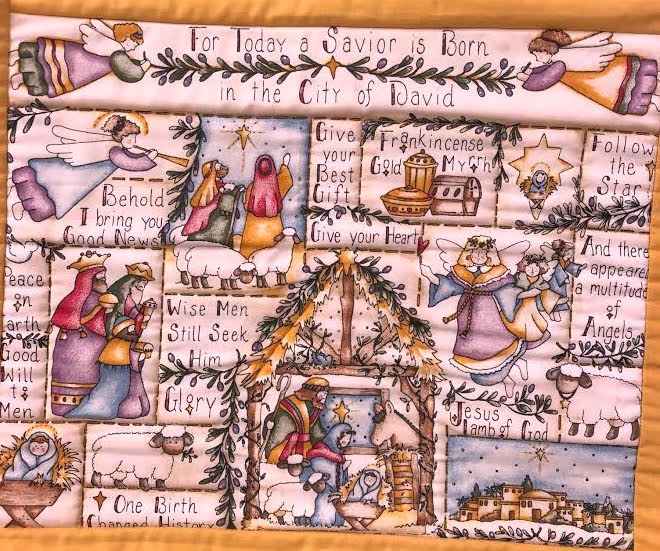 For Today a Savior is Born
in the City of David
Behold
I bring you
Good News
Give
your
Best
Gift
Frankincense
Gold Myrrh
Follow
the
Star
Give your Heart
And there
appeared
a multitude
of
Angels
Peace
on
Earth
Good
Will
to
Men
Wise Men
Still Seek
Him
Glory
Jesus
Lamb of God
One Birth
Changed History